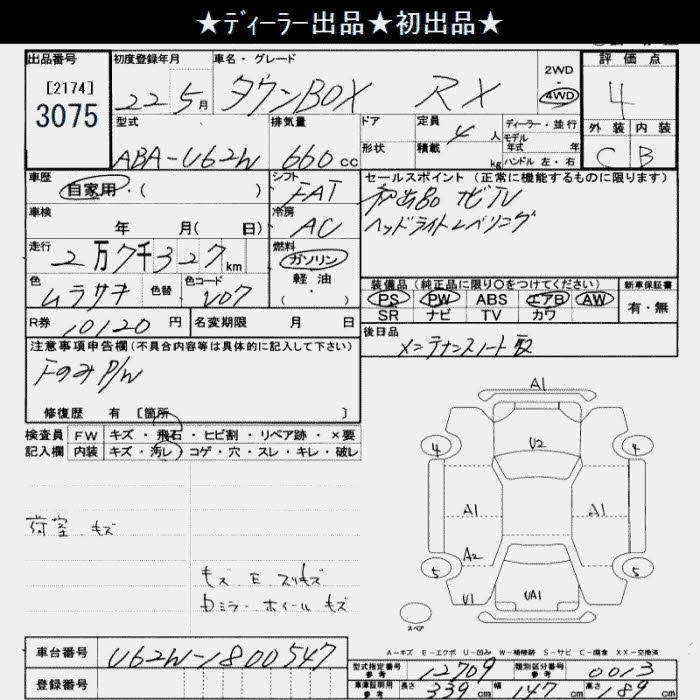 ★ディーラー出品★初出品★
出品番号 初度登録年月 車名・グレード 2WD 評価点
[2174] 22 5月 タウンBOX RX 4WD 4
3075
型式 排気量 ドア 定員 4人 ディーラー・並行 外装 内装
モデル年式 年
ABA-U62W 660cc 形状 積載 kg ハンドル 左・右 C B
車歴 シフト セールスポイント(正常に機能するものに限ります)
自家用・( ) FAT 初出品 ナビTV
車検 冷房 ヘッドライトレベリング
年 月( 日) AC
走行 燃料
2万7千327km ガソリン
色 色替 色コード 軽油 装備品(純正品に限り○をつけてください) 新車保証書
ムラサキ V07 ・( ) PS PW ABS エアB AW 有・無
SR ナビ TV カワ
R券 10120円 名変期限 月 日 後日品
メンテナンスノート
注意事項申告欄(不具合内容等は具体的に記入して下さい)
FのみP/W
修復歴 有 [箇所 ]
検査員 FW キズ・飛石・ヒビ割・リペア跡・×要
記入欄 内装 キズ・汚レ・コゲ・穴・スレ・キレ・破レ
A1
4 U2 4
A1 A1
A2
5 5
U1 UA1
荷室 キズ
キズ.E.スリキズ
Dミラー ホイール キズ
スペア
A-キズ E-エクボ U-凹み W-補修跡 S-サビ C-腐食 XX-交換済
車台番号 U62W-1800547 型式指定番号 参考 12709 類別区分番号 参考 0013
登録番号 車庫証明用 参考 長さ 339cm 幅 147cm 高さ 189cm